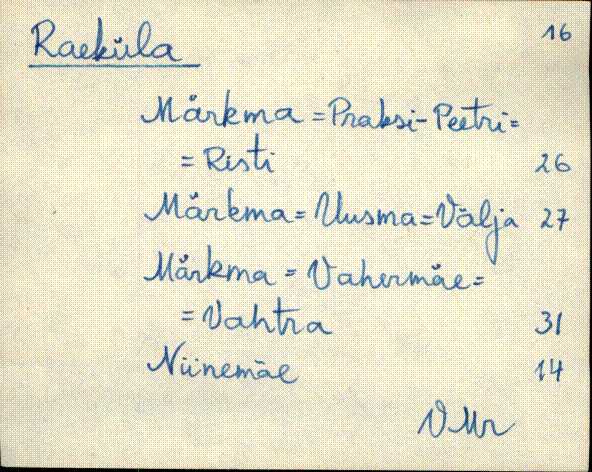 Raeküla 16
Märkma = Praksi - Peetri =
= Risti 26
Märkma = Uusma = Välja 27
Märkma = Vahermäe =
= Vahtra 31
Niinemäe 14
VMr